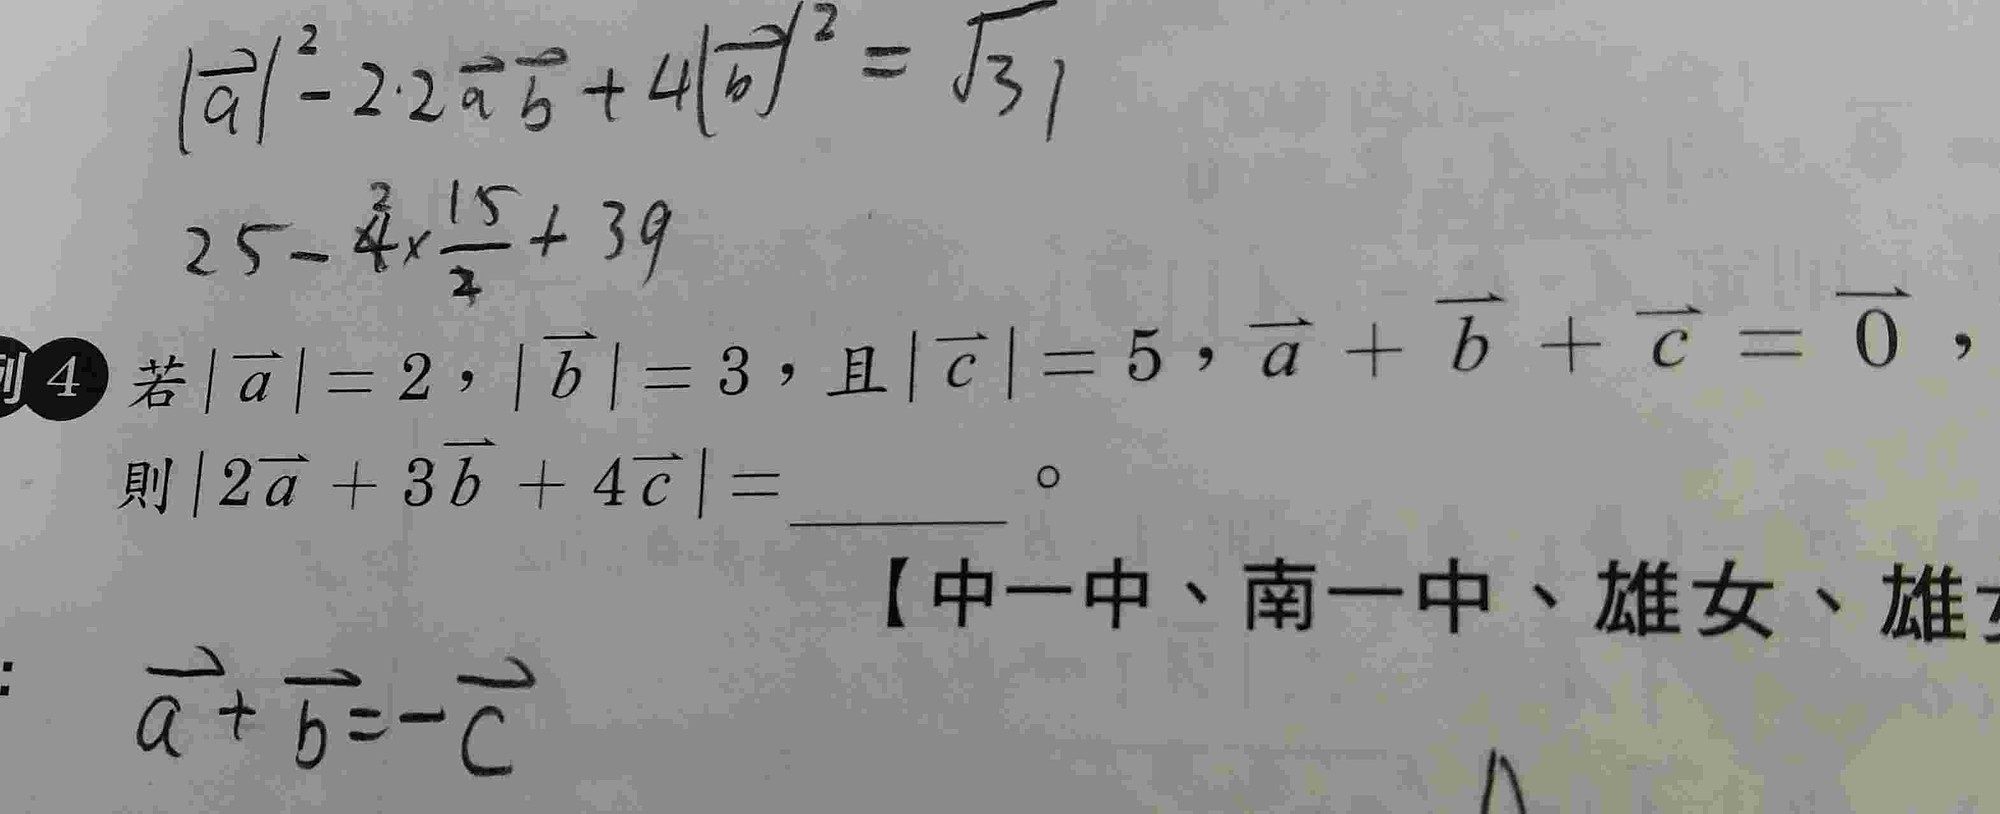 |a⃗|² - 2·2a⃗b⃗ + 4|b⃗|² = √31
25 - 4² × 15/2 + 39
例4 若|a⃗| = 2，|b⃗| = 3，且|c⃗| = 5，a⃗ + b⃗ + c⃗ = 0⃗，
則|2a⃗ + 3b⃗ + 4c⃗| = ______。
【中一中、南一中、雄女、雄
: a⃗ + b⃗ = -c⃗